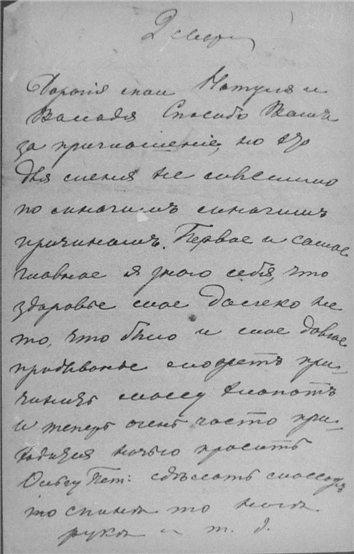 Дорогія мои Натуля и
Володя Спасибо Вамъ
за приглашеніе, но это
для меня не совместимо
по многимъ многимъ
причинамъ. Первое и самое
главное я знаю себя, что
здоровье мое далеко не
то, что было и мое давнее
пребыванье можетъ при-
чинить массу хлопотъ
и теперь очень часто при-
ходится ночью просить
Ольгу Пет: сдѣлать массажъ
то спины то ноги
руки и т. д.